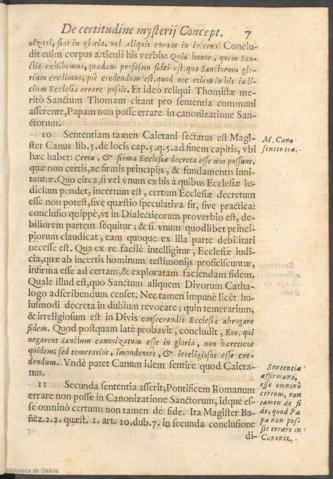 De certitudine mysterij Concept. 7
nizari, sint in gloria, vel aliquis eorum in inferno. Conclu-
dit enim corpus articuli his verbis: Quia honor, quem San-
ctis exhibemus, quædam professio fidei est, qua Sanctorum glo-
riam credimus, piè credendum est, quod nec etiam in his iu-
dicium Ecclesiæ errare possit. Et ideo reliqui Thomistæ me-
ritò Sanctum Thomam citant pro sententia communi
asserente, Papam non posse errare in canonizatione San-
ctorum.
10 Sententiam tamen Caietani sectatus est Magi-
ster Canus lib. 5. de locis cap. 5. q. 5. ad finem capitis, vbi
hæc habet: Certa, & firma Ecclesiæ decreta esse non possunt,
quæ non certis, ac firmis principijs, & fundamentis inni-
tantur. Quo circa, si vel vnum ex his à quibus Ecclesiæ iu-
dicium pendet, incertum est, certum Ecclesiæ decretum
esse non potest, sive quæstio speculativa sit, sive practica:
conclusio quippè, vt in Dialecticorum proverbio est, de-
biliorem partem sequitur; & si vnum quodlibet princi-
piorum claudicat, eam quoque ex illa parte debilitari
necesse est. Qua ex re facilè intelligitur, Ecclesiæ iudi-
cia, quæ ab incertis hominum testimonijs proficiscuntur,
infirma esse ad certam, & exploratam faciendam fidem.
Quale illud est, quo Sanctum aliquem Divorum Catha-
logo adscribendum censet. Nec tamen impunè licèt hu-
iusmodi decreta in dubium revocare; quin temerarium,
& irreligiosum est in Divis consecrandis Ecclesiæ abrogare
fidem. Quod postquam latè probavit, concludit, Eos, qui
negarent Sanctum canonizatum esse in gloria, non hæreticos
quidem; sed temerarios, impudentes, & irreligiosos esse cre-
dendum. Vndè patet Canum idem sentire quod Caieta-
nus.
11 Secunda sententia asserit, Pontificem Romanum
errare non posse in Canonizatione Sanctorum, idque es-
se omninò certum; non tamen de fide. Ita Magister Ba-
ñez 2.2. quæst. 1. art. 10. dub. 7. in secunda conclusione
di-
M. Cano
sententia.
Sententia
affirmans,
esse omninò
certum, non
tamen de fi
de, quod Pa
pa non pos-
sit errare in
Canoniz.
Biblioteca de Galicia